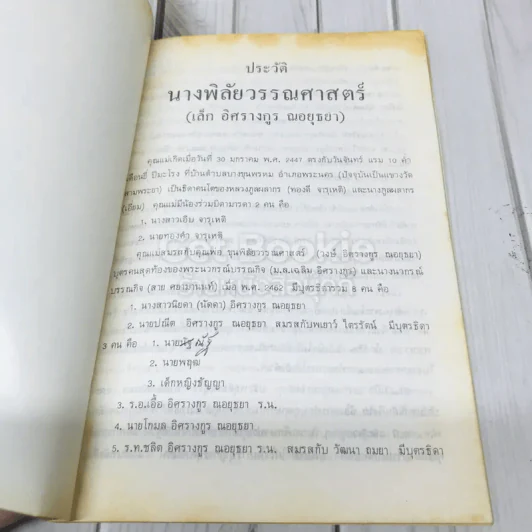 ประวัติ
นางพิลัยวรรณศาสตร์
(เล็ก อิศรางกูร ณอยุธยา)
คุณแม่เกิดเมื่อวันที่ 30 มกราคม พ.ศ. 2447 ตรงกับวันจันทร์ แรม 10 ค่ำ
เดือนยี่ ปีมะโรง ที่บ้านตำบลบางขุนพรหม อำเภอพระนคร (ปัจจุบันเป็นแขวงวัด
สามพระยา) เป็นธิดาคนโตของหลวงภูผลากร (ทองดี จารุเหติ) และนางภูผลากร
(เนียม) คุณแม่มีน้องร่วมบิดามารดา 2 คน คือ
1. นางสาวเอิบ จารุเหติ
2. นายทองคำ จารุเหติ
คุณแม่สมรสกับคุณพ่อ ขุนพิลัยวรรณศาสตร์ (วงษ์ อิศรางกูร ณอยุธยา)
บุตรคนสุดท้องของพระนวกรณ์บรรณกิจ (ม.ล.เฉลิม อิศรางกูร) และนางนวกรณ์
บรรณกิจ (สาย ศยามานนท์) เมื่อ พ.ศ. 2462 มีบุตรธิดารวม 8 คน คือ
1. นางสาวนิยดา (นัดดา) อิศรางกูร ณอยุธยา
2. นายปณีต อิศรางกูร ณอยุธยา สมรสกับเยาว์ ไตรรัตน์ มีบุตรธิดา
3 คน คือ 1. นายณัฐ
2. นายพฤฒ
3. เด็กหญิงธัญญา
3. ร.อ.เอื้อ อิศรางกูร ณอยุธยา ร.น.
4. นายโกมล อิศรางกูร ณอยุธยา
5. ร.ท.ชลิต อิศรางกูร ณอยุธยา ร.น. สมรสกับ วัฒนา ถมยา มีบุตรธิดา